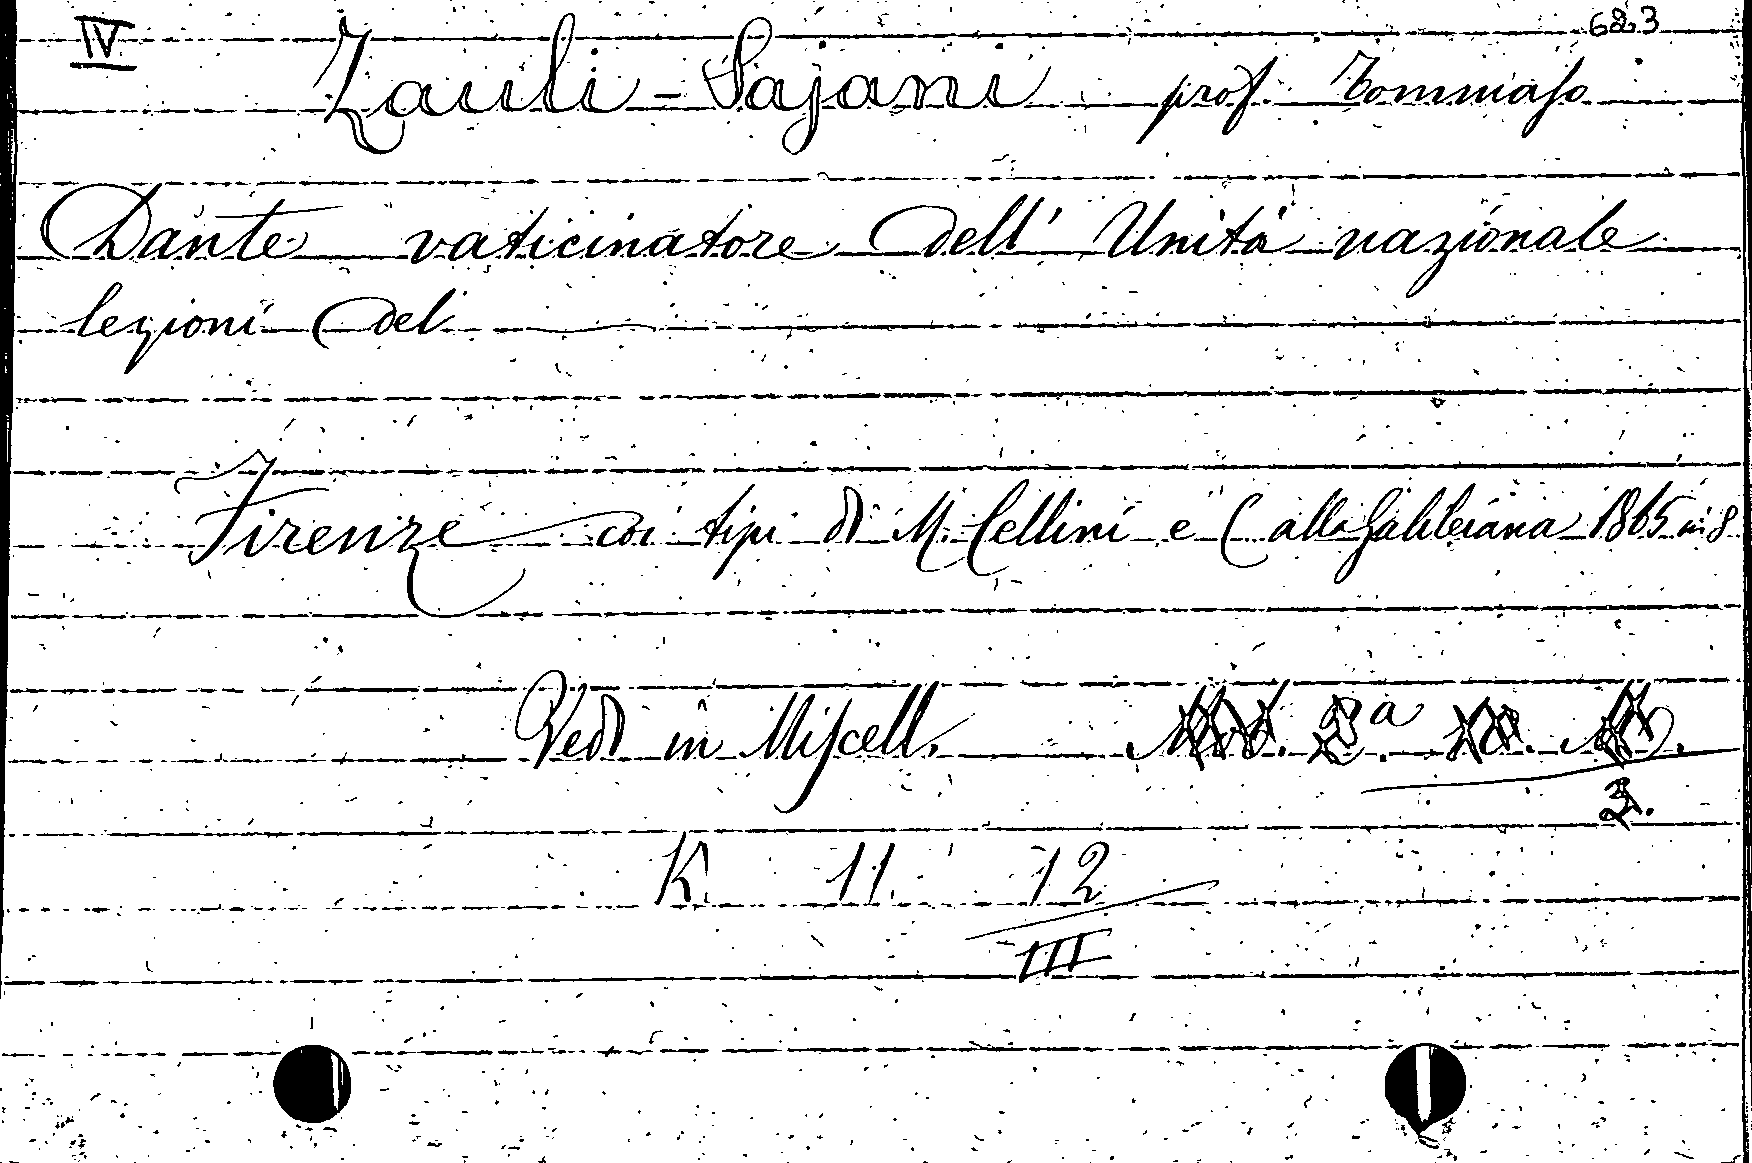 IV 683
Zauli-Sajani prof. Tommaso
Dante vaticinatore dell' Unità nazionale
lezioni del
Firenze coi tipi di M. Cellini e C alla Galileiana 1865 in 8
Vedi in Miscell.
K. 11. 12
III